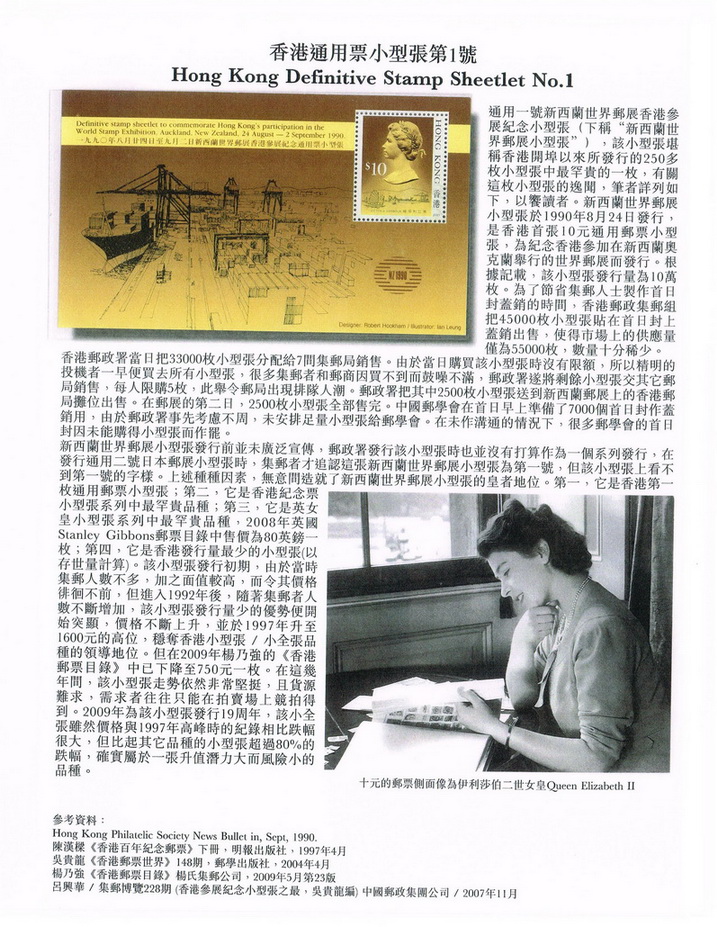 香港通用票小型張第1號
Hong Kong Definitive Stamp Sheetlet No.1
Definitive stamp sheetlet to commemorate Hong Kong's participation in the
World Stamp Exhibition, Auckland, New Zealand, 24 August — 2 September 1990.
一九九〇年八月廿四日至九月二日新西蘭世界郵展香港參展紀念通用票小型張
$10
HONG KONG 香港
NZ 1990
Designer: Robert Hookham / Illustrator: Ian Leung
通用一號新西蘭世界郵展香港參
展紀念小型張（下稱“新西蘭世
界郵展小型張”），該小型張堪
稱香港開埠以來所發行的250多
枚小型張中最罕貴的一枚，有關
這枚小型張的逸聞，筆者詳列如
下，以饗讀者。新西蘭世界郵展
小型張於1990年8月24日發行，
是香港首張10元通用郵票小型
張，為紀念香港參加在新西蘭奧
克蘭舉行的世界郵展而發行。根
據記載，該小型張發行量為10萬
枚。為了節省集郵人士製作首日
封蓋銷的時間，香港郵政集郵組
把45000枚小型張貼在首日封上
蓋銷出售，使得市場上的供應量
僅為55000枚，數量十分稀少。
香港郵政署當日把33000枚小型張分配給7間集郵局銷售。由於當日購買該小型張時沒有限額，所以精明的
投機者一早便買去所有小型張，很多集郵者和郵商因買不到而鼓噪不滿，郵政署遂將剩餘小型張交其它郵
局銷售，每人限購5枚，此舉令郵局出現排隊人潮。郵政署把其中2500枚小型張送到新西蘭郵展上的香港郵
局攤位出售。在郵展的第二日，2500枚小型張全部售完。中國郵學會在首日早上準備了7000個首日封作蓋
銷用，由於郵政署事先考慮不周，未安排足量小型張給郵學會。在未作溝通的情況下，很多郵學會的首日
封因未能購得小型張而作罷。
新西蘭世界郵展小型張發行前並未廣泛宣傳，郵政署發行該小型張時也並沒有打算作為一個系列發行，在
發行通用二號日本郵展小型張時，集郵者才追認這張新西蘭世界郵展小型張為第一號，但該小型張上看不
到第一號的字樣。上述種種因素，無意間造就了新西蘭世界郵展小型張的皇者地位。第一，它是香港第一
枚通用郵票小型張；第二，它是香港紀念票
小型張系列中最罕貴品種；第三，它是英女
皇小型張系列中最罕貴品種，2008年英國
Stanley Gibbons郵票目錄中售價為80英鎊一
枚；第四，它是香港發行量最少的小型張(以
存世量計算)。該小型張發行初期，由於當時
集郵人數不多，加之面值較高，而令其價格
徘徊不前，但進入1992年後，隨著集郵者人
數不斷增加，該小型張發行量少的優勢便開
始突顯，價格不斷上升，並於1997年升至
1600元的高位，穩奪香港小型張 / 小全張品
種的領導地位。但在2009年楊乃強的《香港
郵票目錄》中已下降至750元一枚。在這幾
年間，該小型張走勢依然非常堅挺，且貨源
難求，需求者往往只能在拍賣場上競拍得
到。2009年為該小型張發行19周年，該小全
張雖然價格與1997年高峰時的紀錄相比跌幅
很大，但比起其它品種的小型張超過80%的
跌幅，確實屬於一張升值潛力大而風險小的
品種。
十元的郵票側面像為伊利莎伯二世女皇Queen Elizabeth II
參考資料：
Hong Kong Philatelic Society News Bullet in, Sept, 1990.
陳漢樑《香港百年紀念郵票》下冊，明報出版社，1997年4月
吳貴龍《香港郵票世界》148期，郵學出版社，2004年4月
楊乃強《香港郵票目錄》楊氏集郵公司，2009年5月第23版
呂興華 / 集郵博覽228期 (香港參展紀念小型張之最，吳貴龍編) 中國郵政集團公司 / 2007年11月